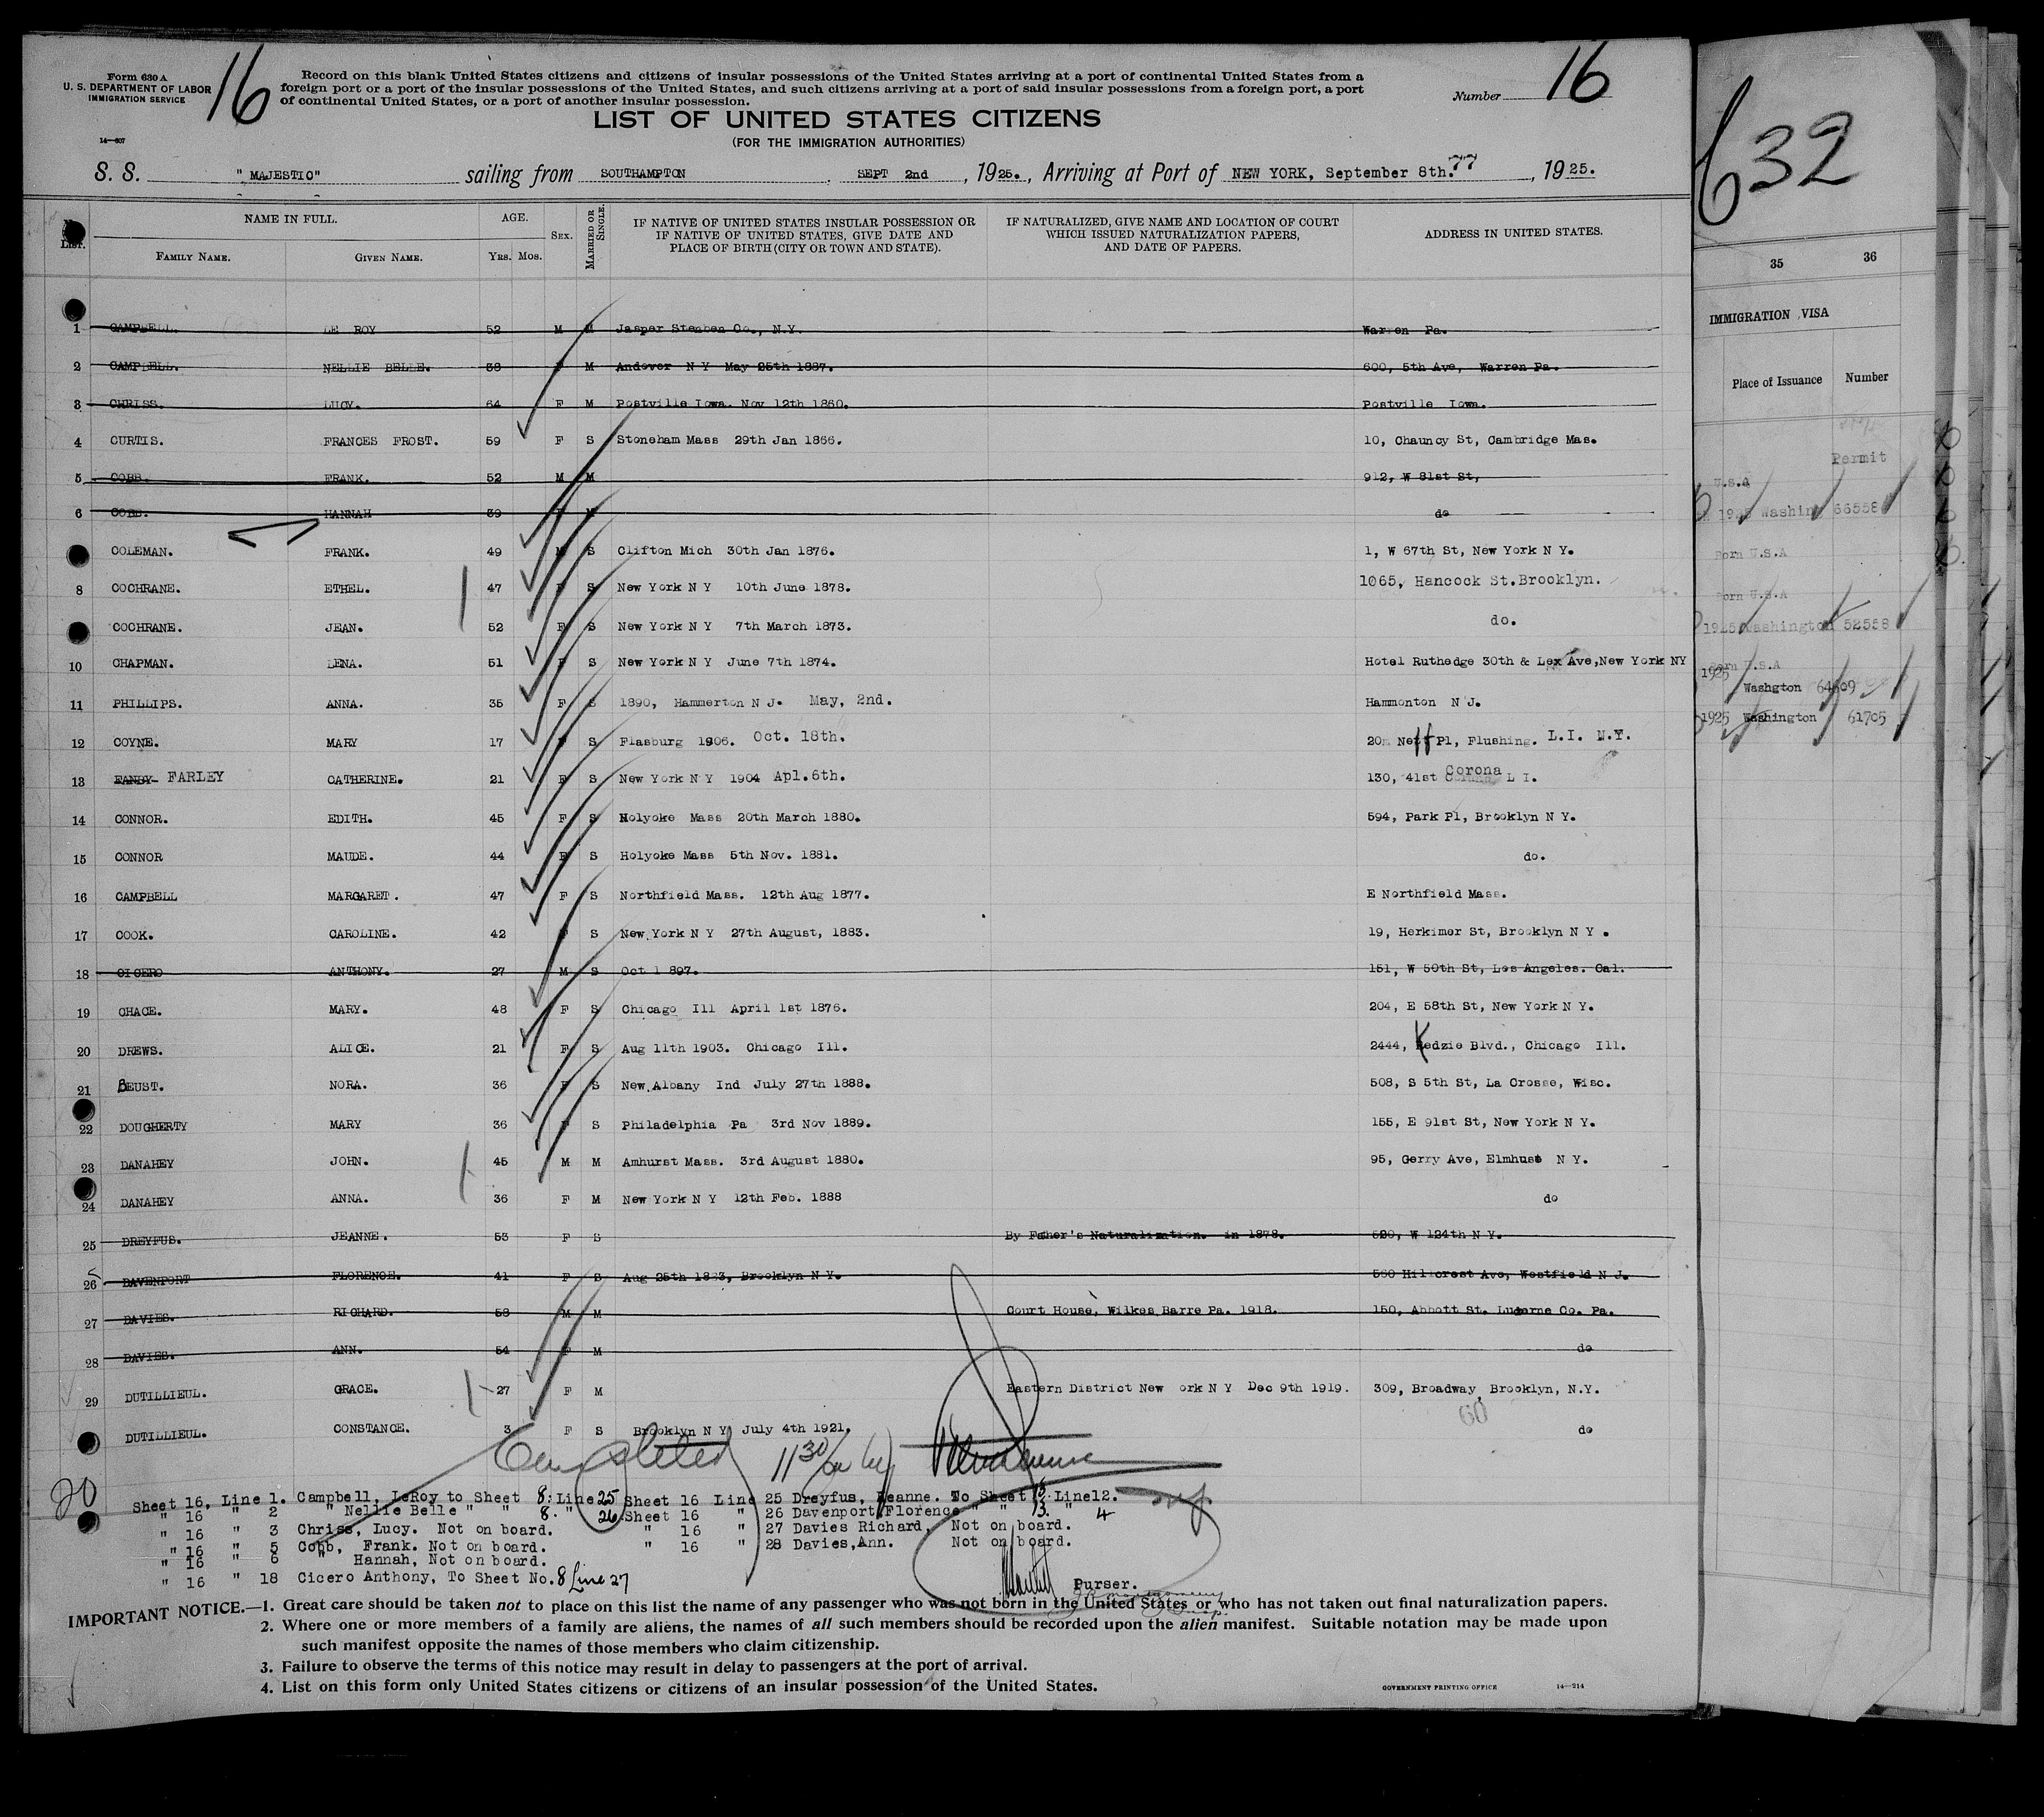 Form 630 A
U. S. DEPARTMENT OF LABOR
IMMIGRATION SERVICE
14—607
16
Record on this blank United States citizens and citizens of insular possessions of the United States arriving at a port of continental United States from a
foreign port or a port of the insular possessions of the United States, and such citizens arriving at a port of said insular possessions from a foreign port, a port
of continental United States, or a port of another insular possession.
Number 16
LIST OF UNITED STATES CITIZENS
(FOR THE IMMIGRATION AUTHORITIES)
S. S. "MAJESTIC" sailing from SOUTHAMPTON SEPT 2nd, 1925., Arriving at Port of NEW YORK, September 8th. 77, 1925.
List. NAME IN FULL. AGE. Sex. MARRIED OR SINGLE. IF NATIVE OF UNITED STATES INSULAR POSSESSION OR IF NATIVE OF UNITED STATES, GIVE DATE AND PLACE OF BIRTH (CITY OR TOWN AND STATE). IF NATURALIZED, GIVE NAME AND LOCATION OF COURT WHICH ISSUED NATURALIZATION PAPERS, AND DATE OF PAPERS. ADDRESS IN UNITED STATES.
Family Name. Given Name. Yrs. Mos.
1 CAMPBELL. LE ROY 52 M M Jasper Steuben Co., N.Y. Warren Pa.
2 CAMPBELL. NELLIE BELLE. 38 F M Andover N Y May 25th 1887. 600, 5th Ave, Warren Pa.
3 CHRISS. LUCY. 64 F M Postville Iowa. Nov 12th 1860. Postville Iowa.
4 CURTIS. FRANCES FROST. 59 F S Stoneham Mass 29th Jan 1866. 10, Chauncy St, Cambridge Mas.
5 COBB. FRANK. 52 M M 912, W 81st St,
6 COBB. HANNAH 39 F M do
COLEMAN. FRANK. 49 M S Clifton Mich 30th Jan 1876. 1, W 67th St, New York N Y.
8 COCHRANE. ETHEL. 47 F S New York N Y 10th June 1878. 1065, Hancock St. Brooklyn.
COCHRANE. JEAN. 52 F S New York N Y 7th March 1873. do.
10 CHAPMAN. LENA. 51 F S New York N Y June 7th 1874. Hotel Ruthedge 30th & Lex Ave, New York NY
11 PHILLIPS. ANNA. 35 F S 1890, Hammerton N J. May, 2nd. Hammonton N J.
12 COYNE. MARY 17 F S Flasburg 1906. Oct. 18th. Pl, Flushing. L.I. N.Y.
13 FANBY FARLEY CATHERINE. 21 F S New York N Y 1904 Apl. 6th. 130, 41st Corona L I.
14 CONNOR. EDITH. 45 F S Holyoke Mass 20th March 1880. 594, Park Pl, Brooklyn N Y.
15 CONNOR MAUDE. 44 F S Holyoke Mass 5th Nov. 1881. do.
16 CAMPBELL MARGARET. 47 F S Northfield Mass. 12th Aug 1877. E Northfield Mass.
17 COOK. CAROLINE. 42 F S New York N Y 27th August, 1883. 19, Herkimer St, Brooklyn N Y.
18 CICERO ANTHONY. 27 M S Oct 1 897. 151, W 50th St, Los Angeles. Cal.
19 CHACE. MARY. 48 F S Chicago Ill April 1st 1876. 204, E 58th St, New York N Y.
20 DREWS. ALICE. 21 F S Aug 11th 1903. Chicago Ill. 2444, Kedzie Blvd., Chicago Ill.
21 BEUST. NORA. 36 F S New Albany Ind July 27th 1888. 508, S 5th St, La Crosse, Wisc.
22 DOUGHERTY MARY 36 F S Philadelphia Pa 3rd Nov 1889. 155, E 91st St, New York N Y.
23 DANAHEY JOHN. 45 M M Amhurst Mass. 3rd August 1880. 95, Gerry Ave, Elmhust N Y.
24 DANAHEY ANNA. 36 F M New York N Y 12th Feb. 1888 do
25 DREYFUS. JEANNE. 53 F S By Father's Naturalization. in 1878. 520, W 124th N Y.
26 DAVENPORT FLORENCE. 41 F S Aug 25th 1883, Brooklyn N Y. 560 Hillcrest Ave, Westfield N J.
27 DAVIES. RICHARD. 58 M M Court House, Wilkes Barre Pa. 1918. 150, Abbott St. Luzerne Co. Pa.
28 DAVIES. ANN. 54 F M do
29 DUTILLIEUL. GRACE. 27 F M Eastern District New ork N Y Dec 9th 1919. 309, Broadway, Brooklyn, N.Y.
60
DUTILLIEUL. CONSTANCE. 3 F S Brooklyn N Y July 4th 1921. do
Completed 11 30
20
Sheet 16, Line 1. Campbell, LeRoy to Sheet 8: Line 25 Sheet 16 Line 25 Dreyfus, Jeanne. To Sheet 13. Line 12.
" 16 " 2 " Nellie Belle " " 8. " 26. Sheet 16 " 26 Davenport, Florence " " 13. " 4
" 16 " 3 Chriss, Lucy. Not on board. " 16 " 27 Davies Richard, Not on board.
" 16 " 5 Cobb, Frank. Not on board. " 16 " 28 Davies, Ann. Not on board.
" 16 " 6 " Hannah, Not on board.
" 16 " 18 Cicero Anthony, To Sheet No. 8 Line 27
Purser.
IMPORTANT NOTICE.—1. Great care should be taken not to place on this list the name of any passenger who was not born in the United States or who has not taken out final naturalization papers.
2. Where one or more members of a family are aliens, the names of all such members should be recorded upon the alien manifest. Suitable notation may be made upon
such manifest opposite the names of those members who claim citizenship.
3. Failure to observe the terms of this notice may result in delay to passengers at the port of arrival.
4. List on this form only United States citizens or citizens of an insular possession of the United States.
GOVERNMENT PRINTING OFFICE 14—214
632
35 36
IMMIGRATION VISA
Place of Issuance Number
Permit
U.S.A
1925 Washing 66558
Born U.S.A
Born U.S.A
1925 Washington 52558
Born U.S.A
1925
Washgton
1925 Washington 61705